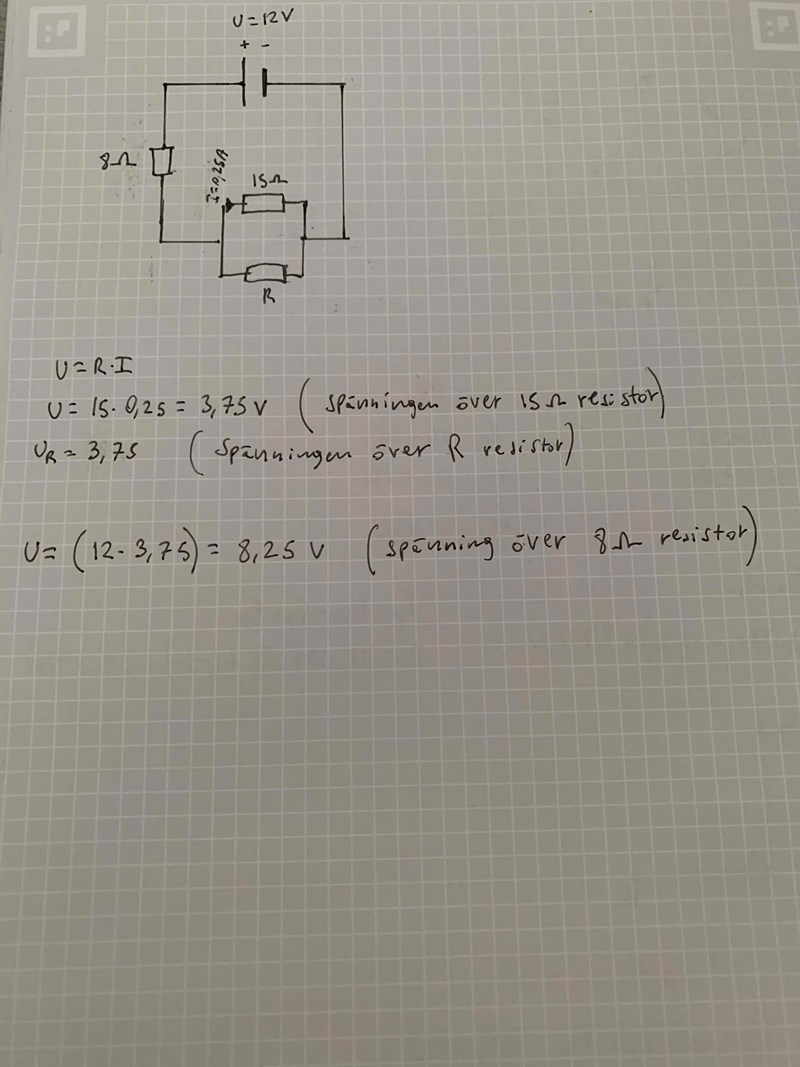 U=12V
+ -
8Ω
I=0,25A
15Ω
R
U=R·I
U=15·0,25=3,75V (spänningen över 15Ω resistor)
UR=3,75 (Spänningen över R resistor)
U=(12-3,75)=8,25 V (spänning över 8Ω resistor)